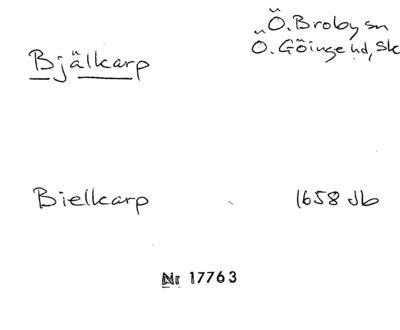 Ö. Broby sn
Bjälkarp
Ö. Göinge hd, Sk
Bielkarp 1658 Jb
Nr 17763